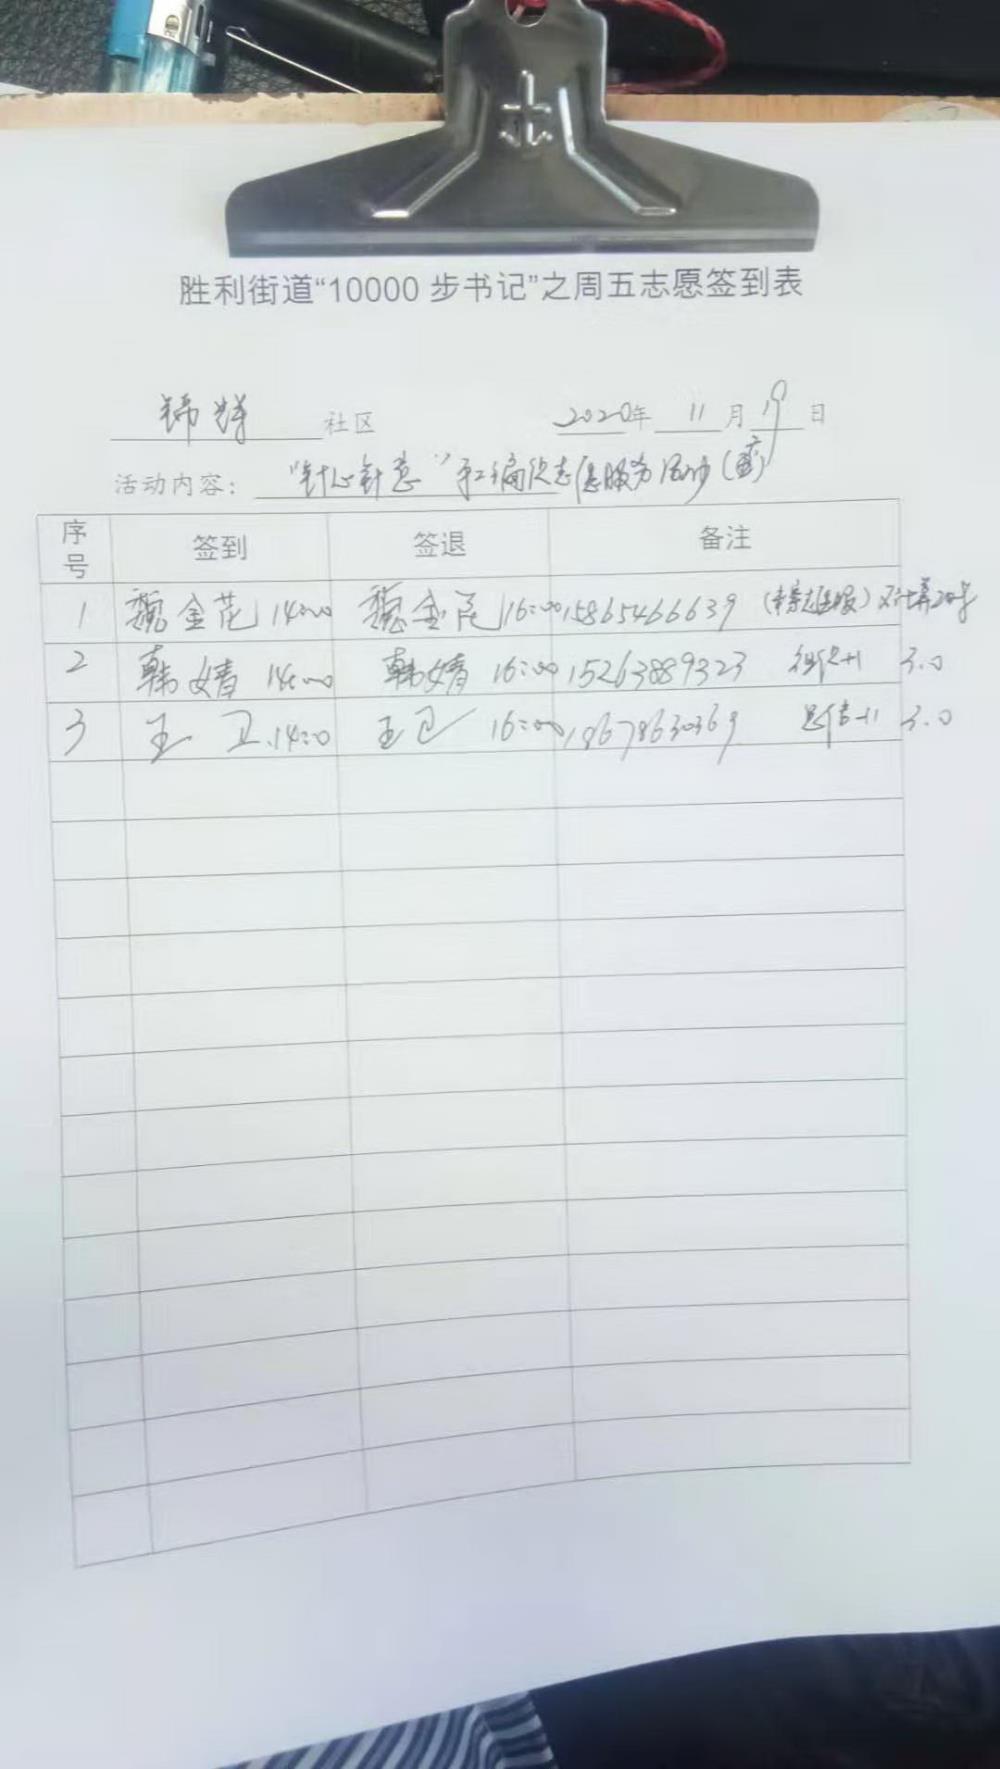 胜利街道“10000步书记”之周五志愿签到表
锦辉 社区 2020年 11 月 19 日
活动内容： “针心针意”手工编织志愿服务活动
序号 签到 签退 备注
1 魏金花 14:00 魏金花 16:00 15865466639
2 韩婧 14:00 韩婧 16:00 15263889323 3.0
3 王卫 14:00 王卫 16:00 18678630369 3.0